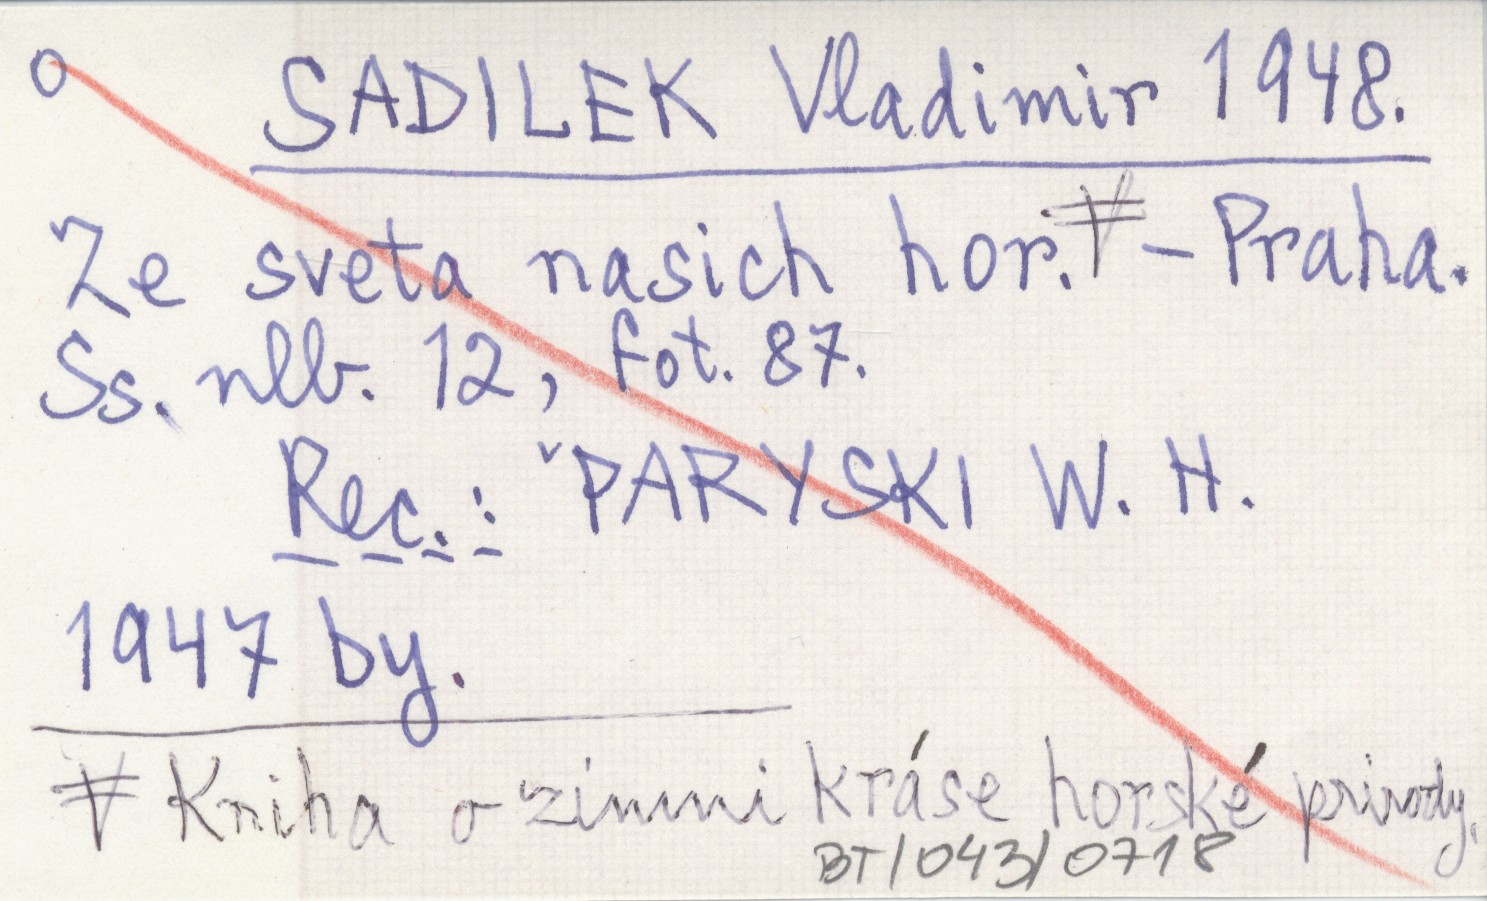 SADILEK Vladimir 1948.
Ze sveta nasich hor. – Praha.
Ss. nlb. 12, fot. 87.
Rec.: PARYSKI W. H.
1947 by.
Kniha o zimni kráse horské prirody.
BT/043/0718